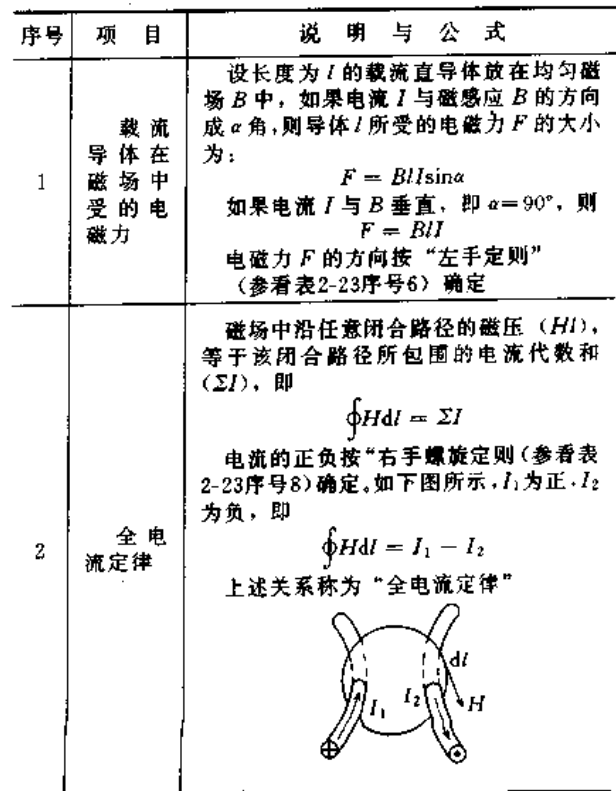 序号 项 目 说 明 与 公 式
1
载流
导体在
磁场中
受的电
磁力
设长度为 l 的载流直导体放在均匀磁
场 B 中，如果电流 I 与磁感应 B 的方向
成 α 角，则导体 l 所受的电磁力 F 的大小
为：
F = BlIsinα
如果电流 I 与 B 垂直，即 α=90°，则
F = BlI
电磁力 F 的方向按“左手定则”
（参看表2-23序号6）确定
2
全电
流定律
磁场中沿任意闭合路径的磁压（Hl），
等于该闭合路径所包围的电流代数和
(ΣI)，即
∮Hdl = ΣI
电流的正负按“右手螺旋定则（参看表
2-23序号8）确定。如下图所示，I₁为正，I₂
为负，即
∮Hdl = I₁ − I₂
上述关系称为“全电流定律”
dl
I₁ I₂ H